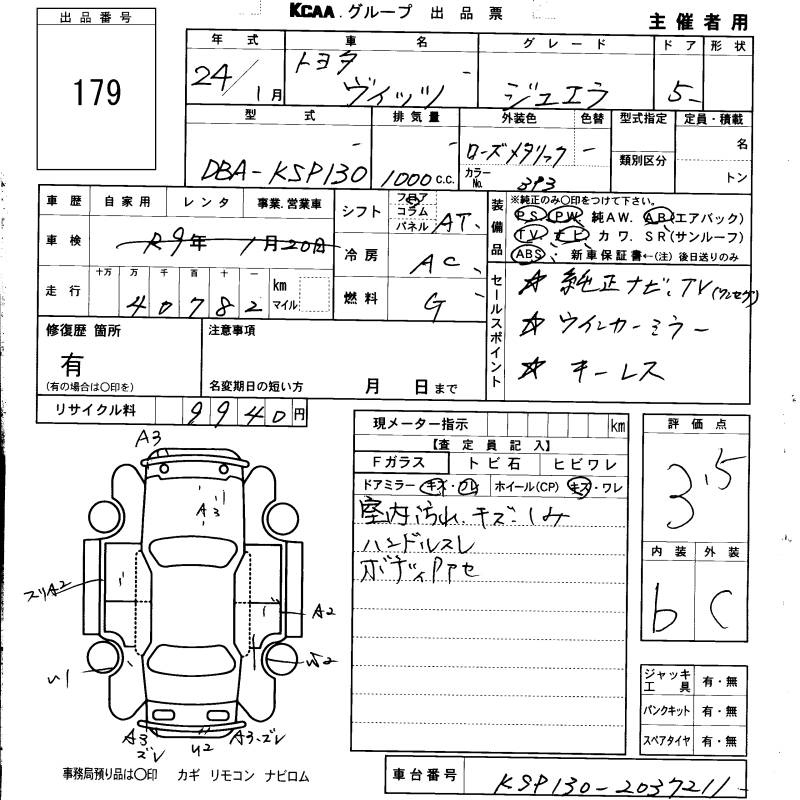 KCAA.グループ 出品票
主催者用
出品番号
179
年式 車名 グレード ドア 形状
24/1月 トヨタ ヴィッツ - ジュエラ 5-
型式 排気量 外装色 色替 型式指定 定員・積載
DBA-KSP130 - 1000c.c. - ローズメタリック - 類別区分 名
カラーNo. 3P3 トン
車歴 自家用 レンタ 事業.営業車
車検 R9年 1月20日
走行 十万 万 千 百 十 一 km マイル
40782
シフト フロア コラム パネル AT.
冷房 AC、
燃料 G
装備品 ※純正のみ〇印をつけて下さい。
PS PW 純AW. AB(エアバック)
TV. ナビ. カワ. SR(サンルーフ)
ABS 新車保証書←(注)後日送りのみ
セールスポイント
☆ 純正ナビ.TV(ワンセグ)
☆ ウインカーミラー
☆ キーレス
修復歴 箇所
有
(有の場合は〇印を)
注意事項
名変期日の短い方 月 日まで
リサイクル料 9940円
現メーター指示 km
【査定員記入】
Fガラス トビ石 ヒビワレ
ドアミラー キズ・ワレ ホイール(CP) キズ・ワレ
室内汚れ.キズ.シミ
ハンドルスレ
評価点
3.5
内装 外装
b C
A3
A3
スリA2
A2
U1
A3
ズレ
U2
A3・ズレ
ジャッキ工具 有・無
パンクキット 有・無
スペアタイヤ 有・無
事務局預り品は〇印 カギ リモコン ナビロム
車台番号 KSP130-2037211-